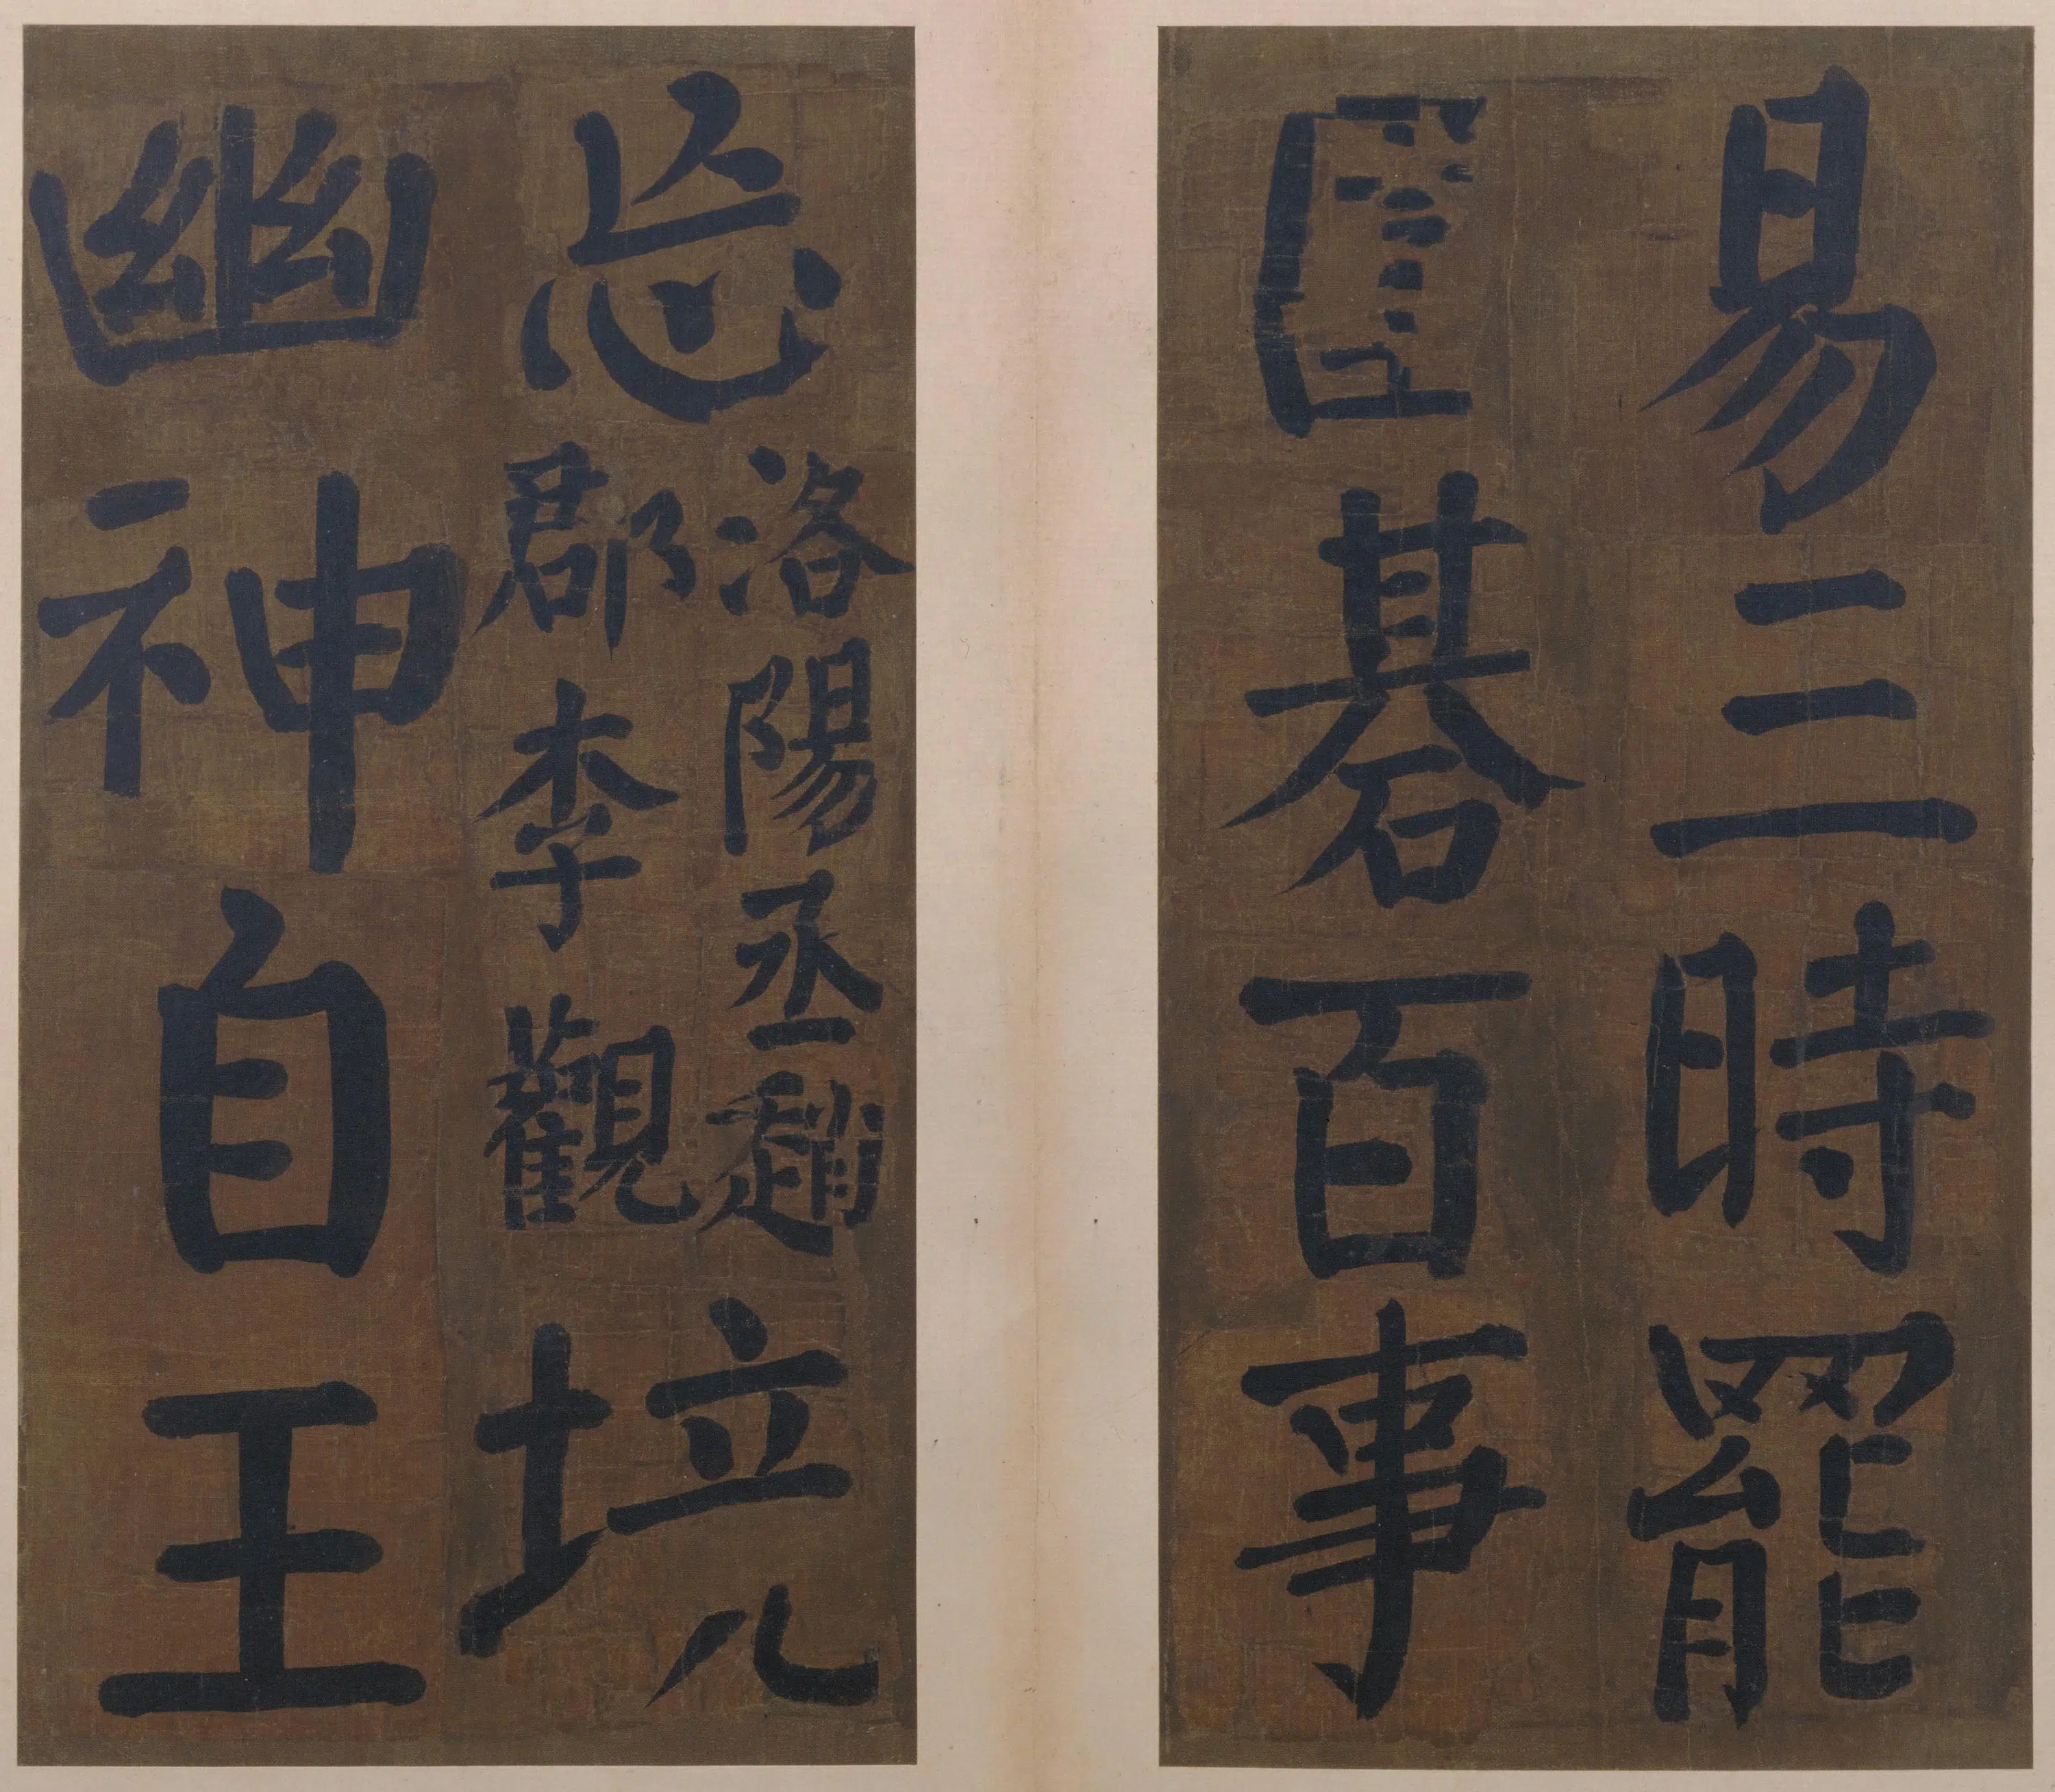 易三時罷
圍棊百事
忘
洛陽丞趙
郡李觀
境
幽神自王